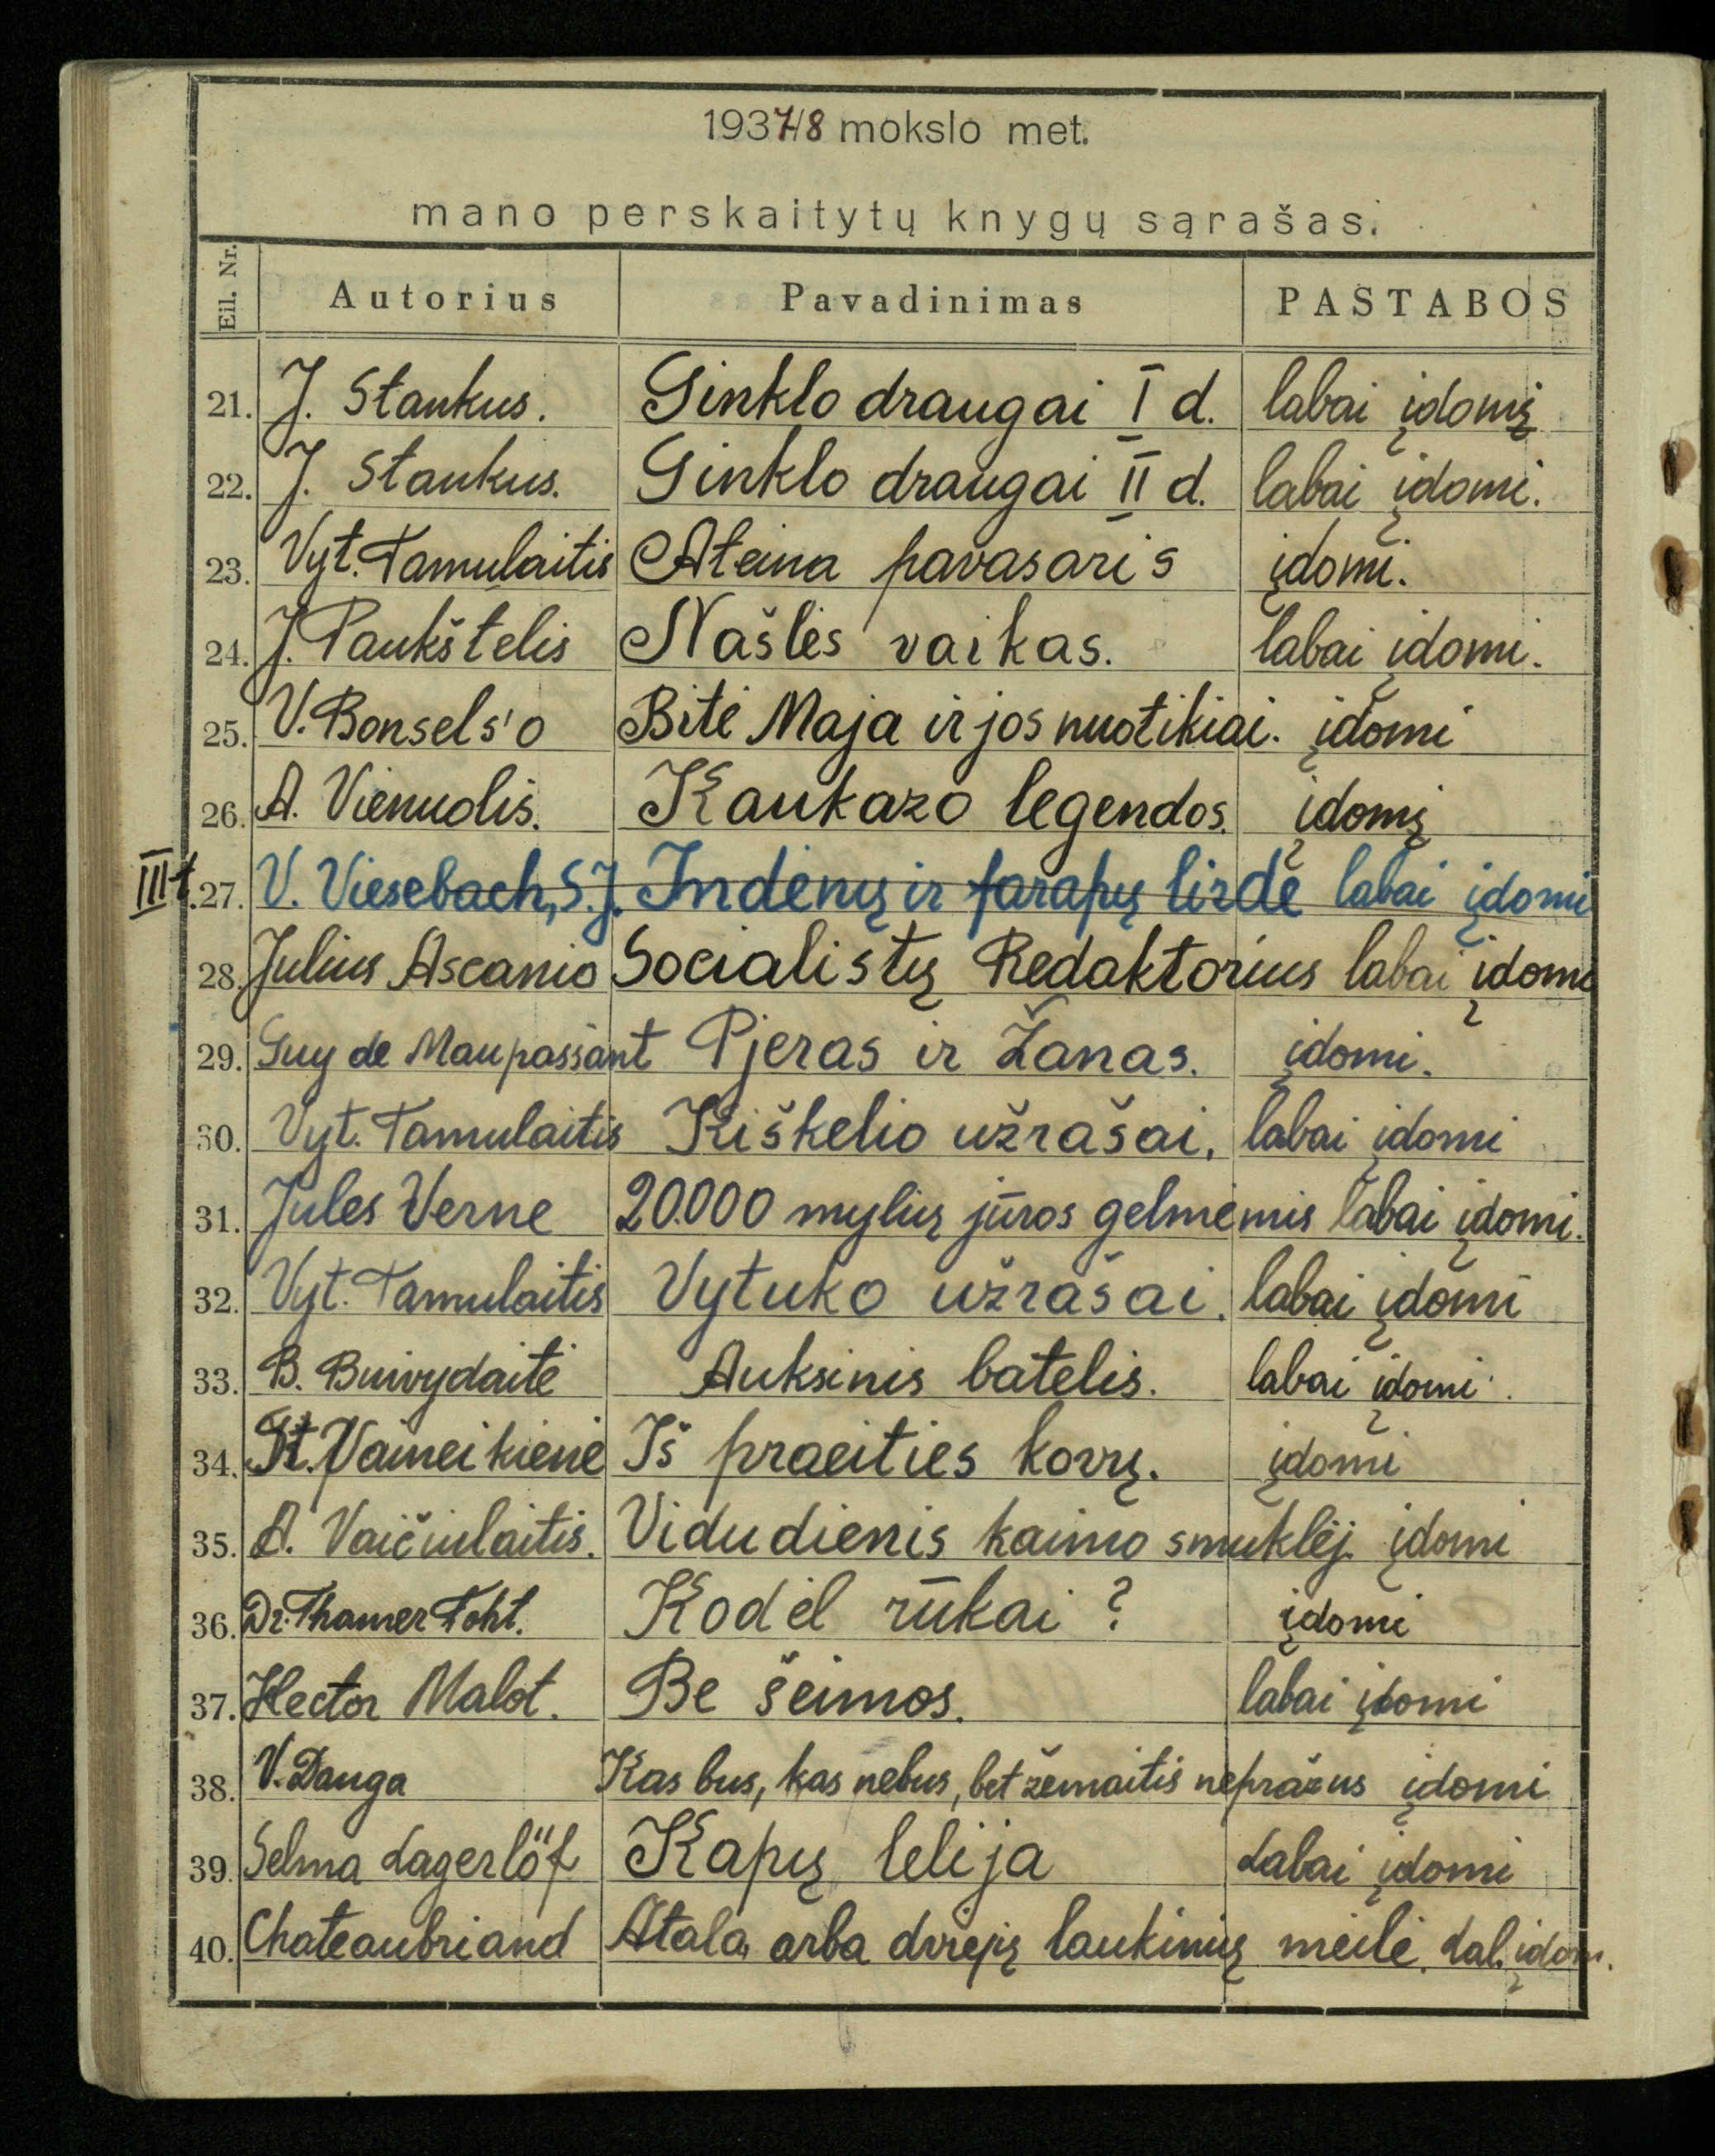 1937/8 mokslo met.
mano perskaitytų knygų sąrašas.
Eil. Nr. Autorius Pavadinimas PASTABOS
21. J. Stankus. Ginklo draugai I d. labai įdomį
22. J. Stankus. Ginklo draugai II d. labai įdomi.
23. Vyt. Tamulaitis Ateina pavasaris įdomi.
24. J. Paukštelis Našlės vaikas. labai įdomi.
25. V. Bonsels'o Bitė Maja ir jos nuotikiai. įdomi
26. A. Vienuolis. Kaukazo legendos. įdomį
III t. 27. V. Viesebach, S.J. Indėnų ir farapų širdė labai įdomi
28. Julius Ascanio Socialistų Redaktorius labai įdomi
29. Guy de Maupassant Pjeras ir Žanas. įdomi.
30. Vyt. Tamulaitis Kiškelio užrašai. labai įdomi
31. Jules Verne 20.000 mylių jūros gelmėmis labai įdomi.
32. Vyt. Tamulaitis Vytuko užrašai. labai įdomi
33. B. Buivydaitė Auksinis batelis. labai įdomi.
34. St. Vaineikienė Iš praeities kovų. įdomi
35. A. Vaičiulaitis. Vidudienis kaimo smuklėj. įdomi
36. Dr. Thamer Toht. Kodėl rūkai? įdomi
37. Hector Malot. Be šeimos. labai įdomi
38. V. Dauga Kas bus, kas nebus, bet žemaitis nepražus įdomi
39. Selma Lagerlöf Kapų lelija Labai įdomi
40. Chateaubriand Atala arba dviejų laukinių meilė. Lab. įdom.